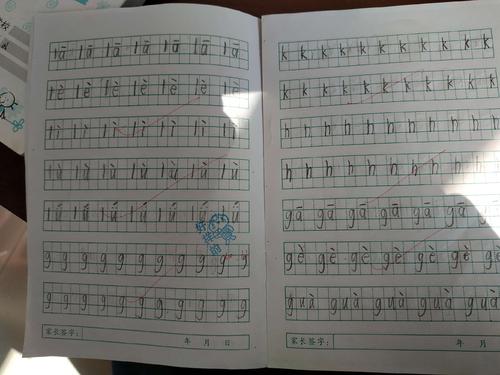 lā lā lā lā lā lā lā
lè lè lè lè lè lè lè
lì lì lì lì lì lì lì
lù lù lù lù lù lù lù
lǘ lǘ lǘ lǘ lǘ lǘ lǘ
g g g g g g g g g g g
g g g g g g g g g g g
家长签字： 年 月 日
k k k k k k k k k k k
k k k k k k k k k k k
h h h h h h h h h h h
h h h h h h h h h h h
gā gā gā gā gā gā gā
gè gè gè gè gè gè gè
guà guà guà guà guà guà
家长签字： 年 月